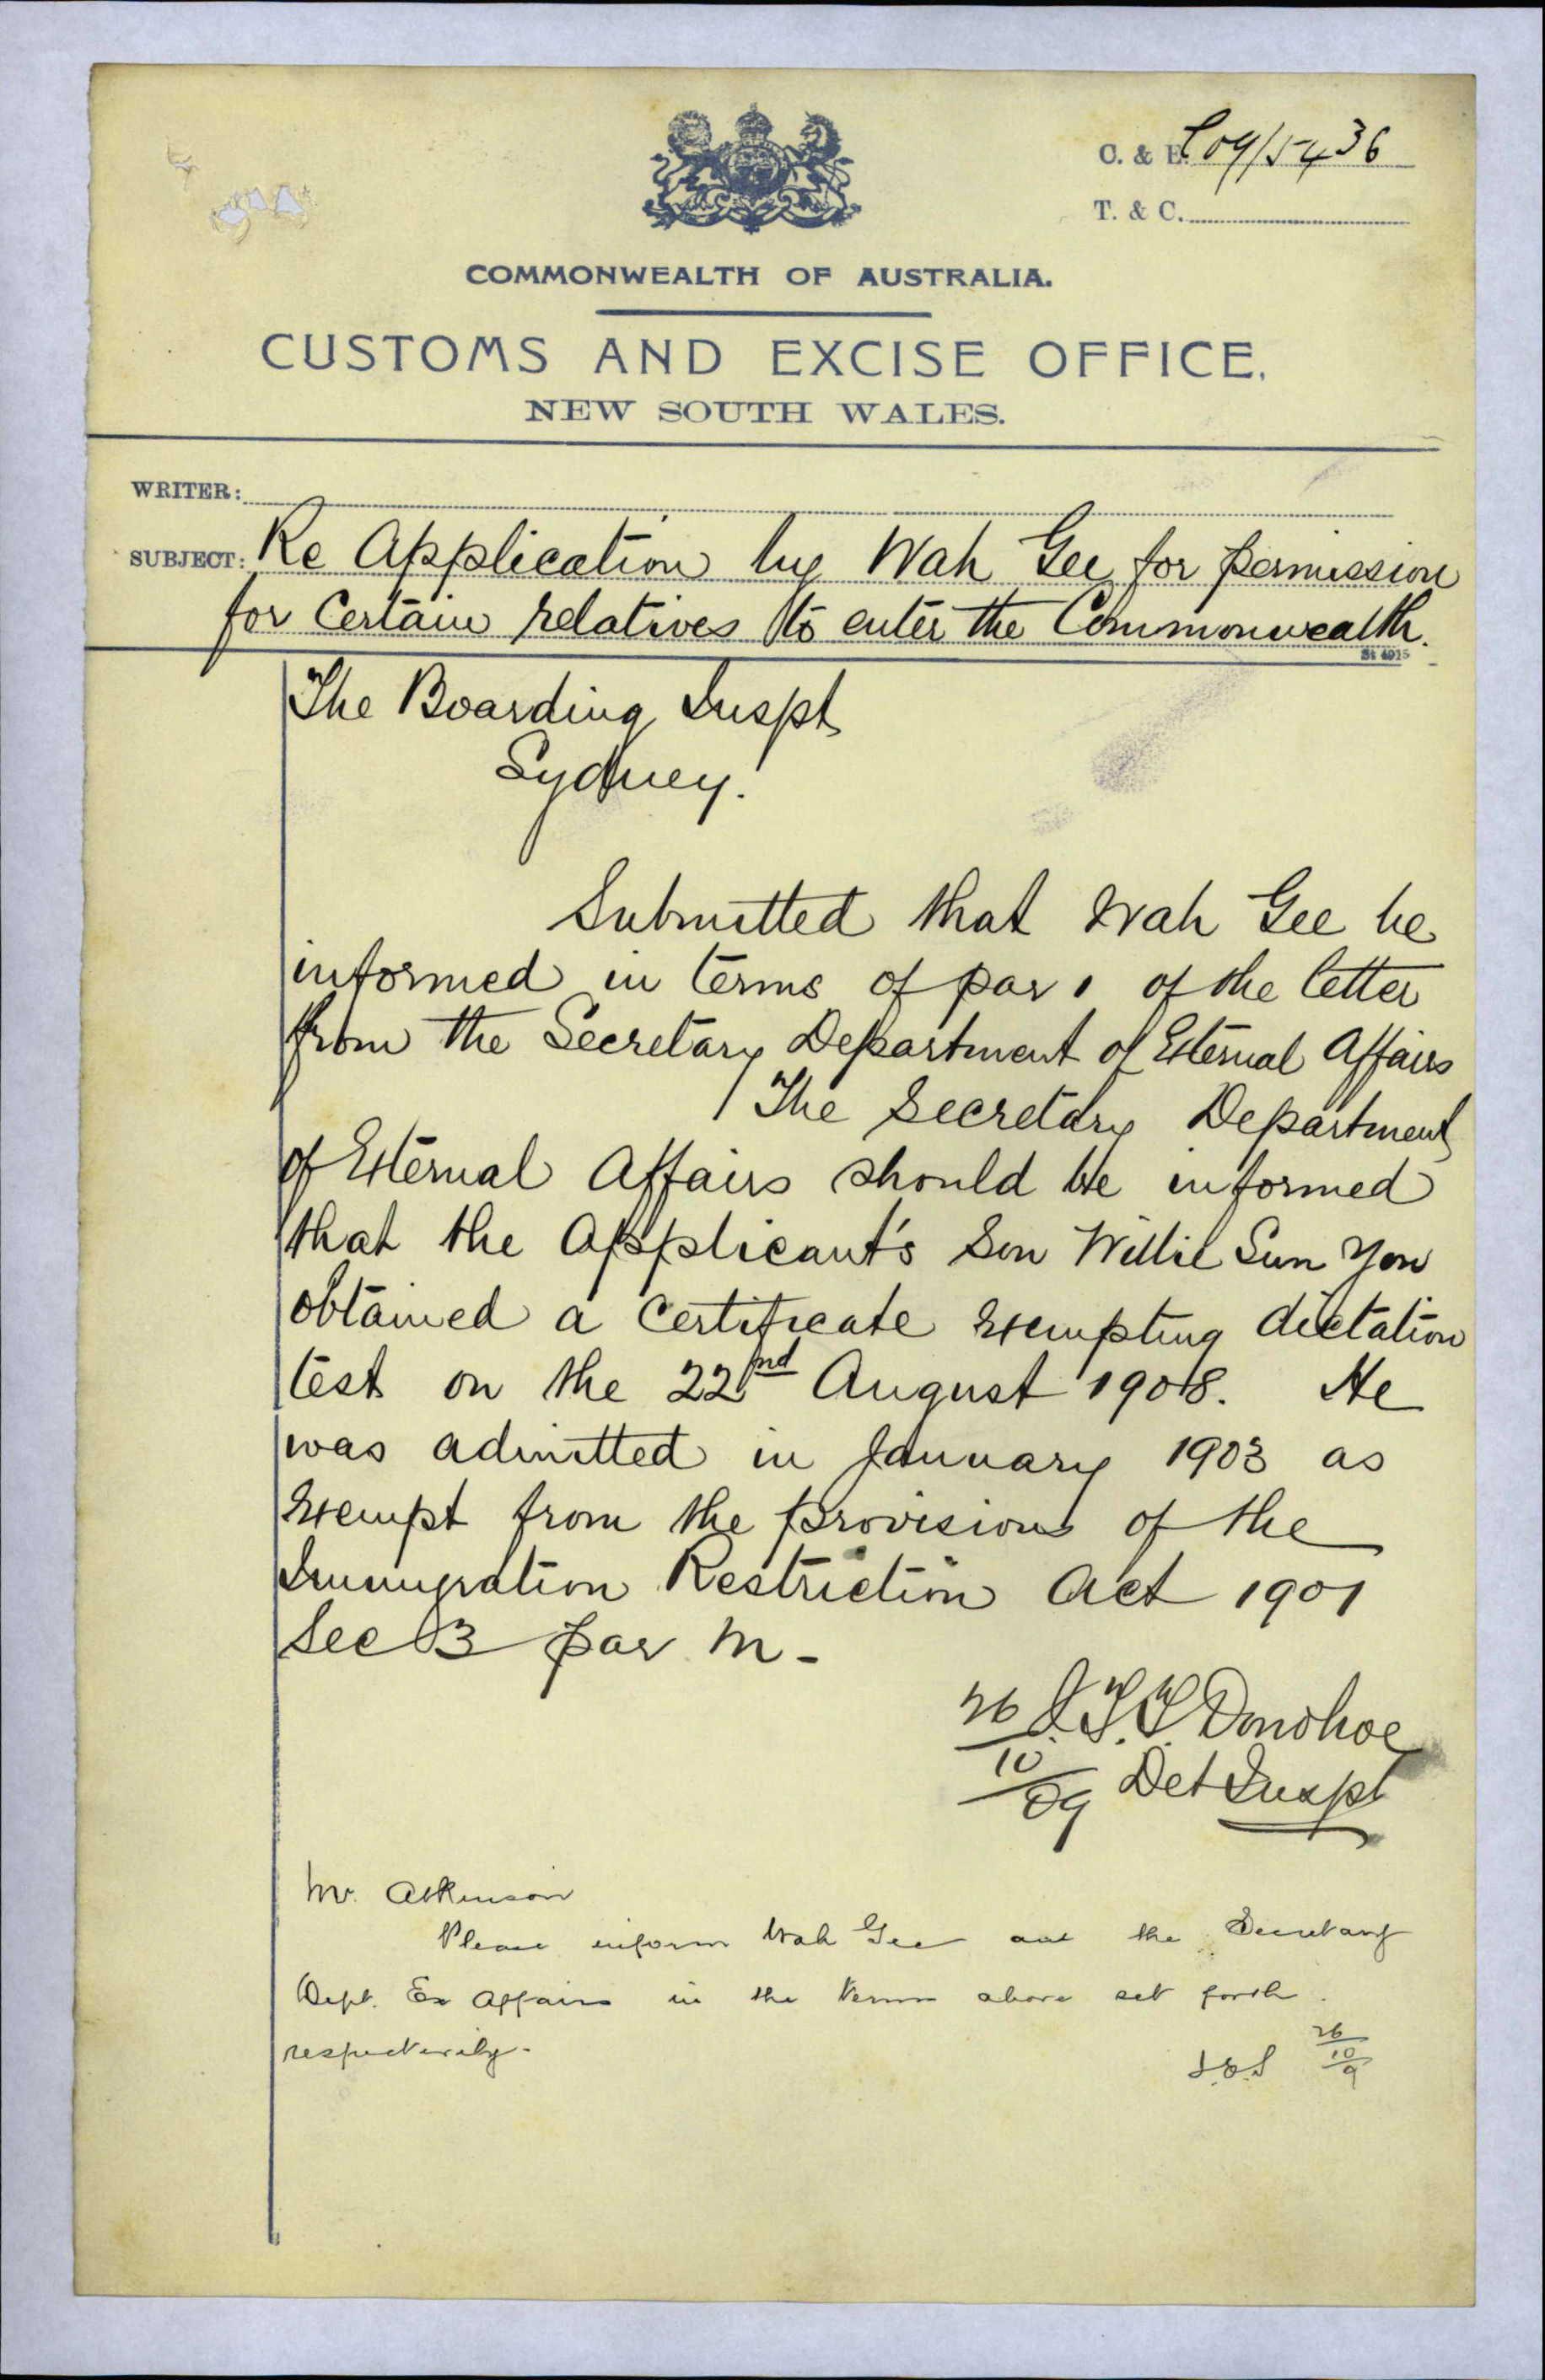 C. & E. C09/5436
T. & C.
COMMONWEALTH OF AUSTRALIA.
CUSTOMS AND EXCISE OFFICE,
NEW SOUTH WALES.
WRITER:
SUBJECT: Re Application by Wah Gee for permission
for certain relatives to enter the Commonwealth.
St 4915
The Boarding Inspt
Sydney.
Submitted that Wah Gee be
informed in terms of par 1 of the letter
from the Secretary Department of External Affairs
The Secretary Department
of External Affairs should be informed
that the Applicant's Son Willie Sun You
obtained a Certificate exempting dictation
test on the 22nd August 1908. He
was admitted in January 1903 as
exempt from the provisions of the
Immigration Restriction Act 1901
Sec 3 par m -
26/10/09 J.T.T. Donohoe
Det Inspt
Mr. Atkinson
Please inform Wah Gee and the Secretary
Dept. Ex Affairs in the terms above set forth
respectively.
26/10/9